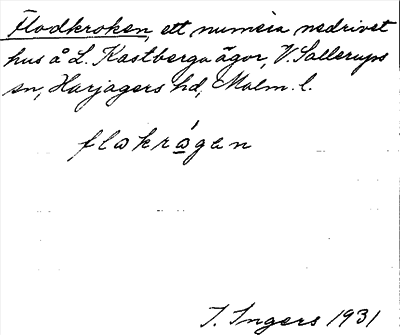 Flodkroken, ett numera nedrivet
hus å L. Kastberga ägor, V. Sallerups
sn, Harjagers hd, Malm. l.
flokrågen
I. Ingers 1931